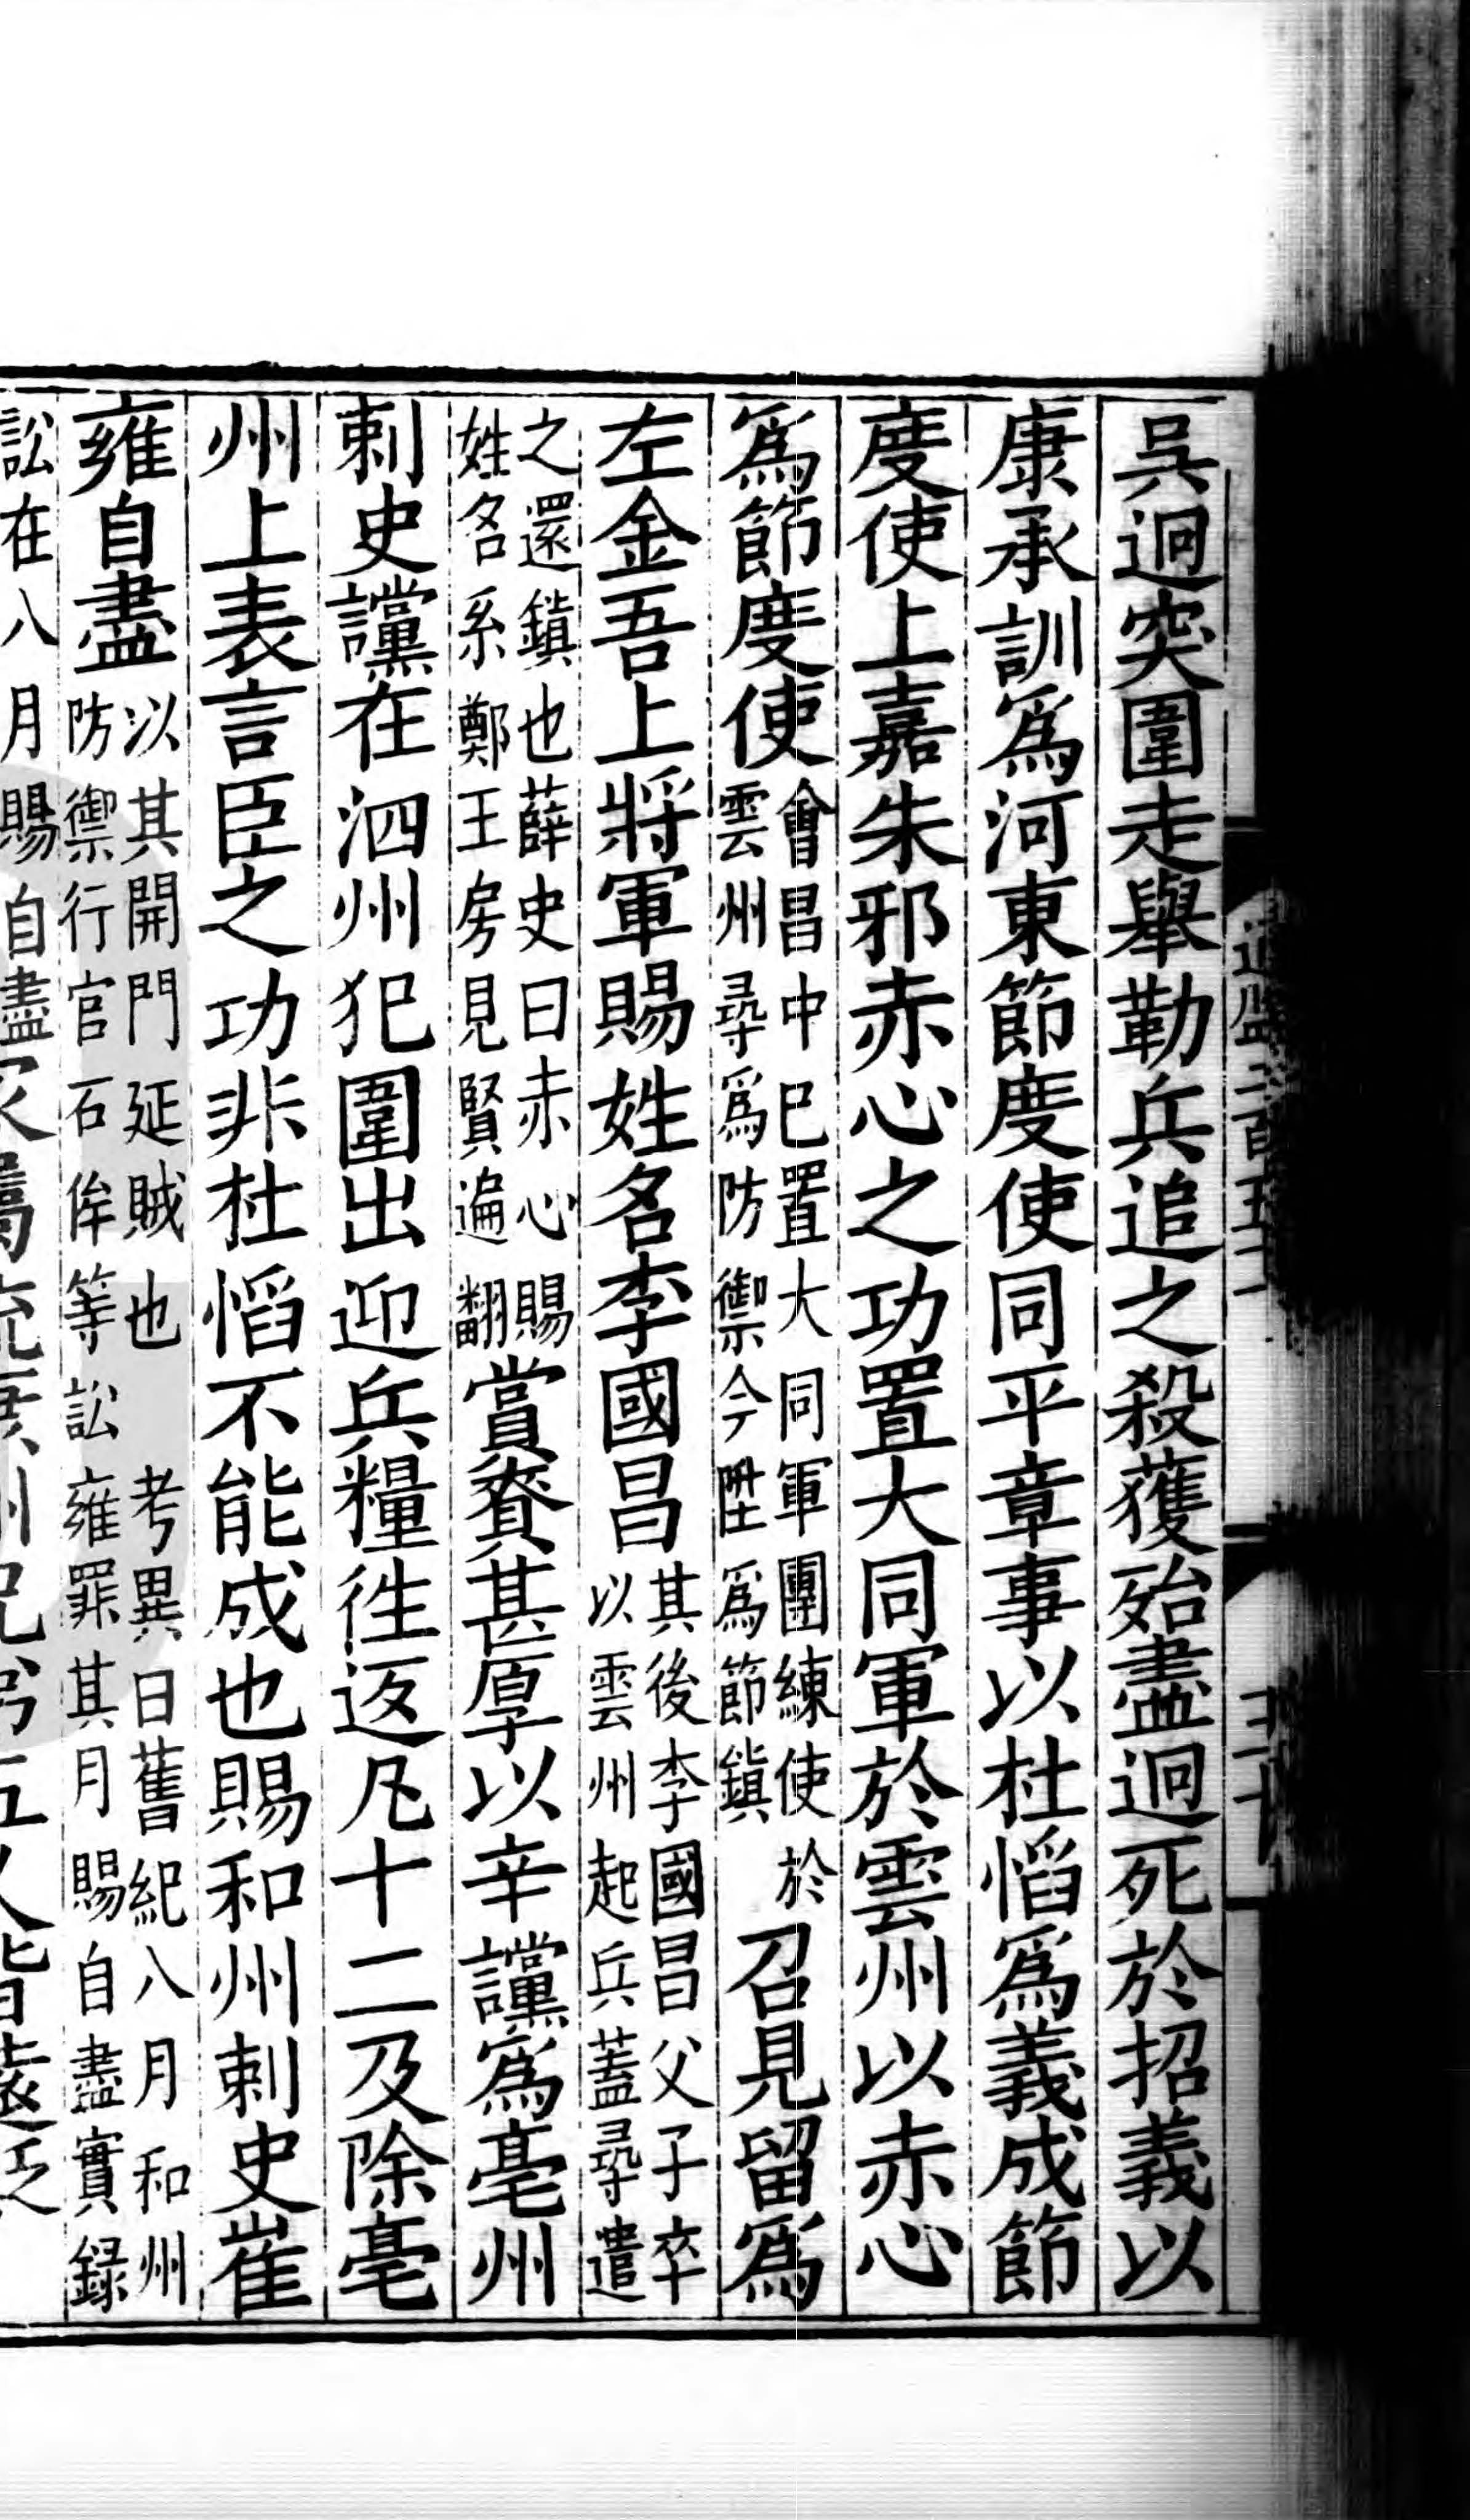 吳迥突圍走舉勒兵追之殺獲殆盡迥死於招義以
康承訓爲河東節度使同平章事以杜慆爲義成節
度使上嘉朱邪赤心之功置大同軍於雲州以赤心
爲節度使會昌中已置大同軍團練使於雲州尋爲防禦今陞爲節鎮召見留爲
左金吾上將軍賜姓名李國昌其後李國昌父子卒以雲州起兵蓋尋遣
之還鎮也薛史曰赤心賜姓名系鄭王房見賢遍翻賞賚甚厚以辛讜爲亳州
刺史讜在泗州犯圍出迎兵糧往返凡十二及除亳
州上表言臣之功非杜慆不能成也賜和州刺史崔
雍自盡以其開門延賊也考異曰舊紀八月和州防禦行官石侔等訟雍罪其月賜自盡實録
訟在八月賜自盡家屬流康州兄弟五人皆遠貶